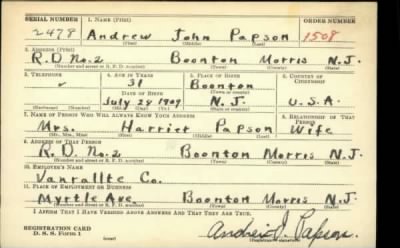 SERIAL NUMBER 1. NAME (Print) ORDER NUMBER
2478 Andrew John Papson 1508
(First) (Middle) (Last)
2. ADDRESS (Print)
R.D. No. 2 Boonton Morris N.J.
(Number and street or R. F. D. number) (Town) (County) (State)
3. TELEPHONE 4. AGE IN YEARS 5. PLACE OF BIRTH 6. COUNTRY OF CITIZENSHIP
31 Boonton
DATE OF BIRTH (Town or county)
July 28 1909 N.J. U.S.A.
(Exchange) (Number) (Mo.) (Day) (Yr.) (State or country)
7. NAME OF PERSON WHO WILL ALWAYS KNOW YOUR ADDRESS 8. RELATIONSHIP OF THAT PERSON
Mrs. Harriet Papson Wife
(Mr., Mrs., Miss) (First) (Middle) (Last)
9. ADDRESS OF THAT PERSON
R.D. No. 2 Boonton Morris N.J.
(Number and street or R. F. D. number) (Town) (County) (State)
10. EMPLOYER'S NAME
Vanrallte Co.
11. PLACE OF EMPLOYMENT OR BUSINESS
Myrtle Ave. Boonton Morris N.J.
(Number and street or R. F. D. number) (Town) (County) (State)
I AFFIRM THAT I HAVE VERIFIED ABOVE ANSWERS AND THAT THEY ARE TRUE.
REGISTRATION CARD
D. S. S. Form 1 Andrew J. Papson
(Registrant's signature)